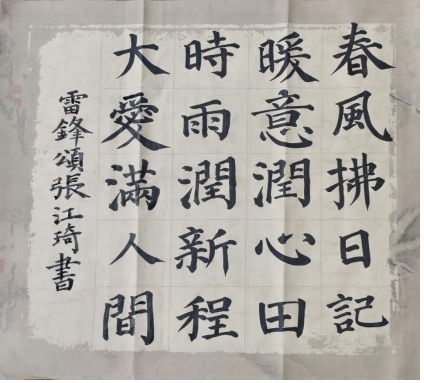 春風拂日記
暖意潤心田
時雨潤新程
大愛滿人間
雷鋒頌張江琦書